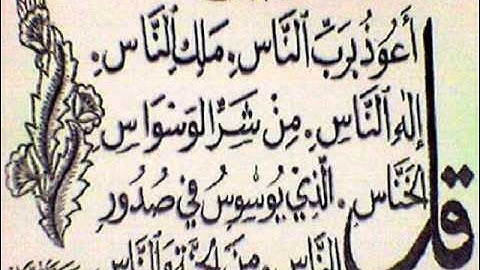 قل أَعُوذُ بِرَبِّ النَّاسِ. مَلِكِ النَّاسِ.
إِلٰهِ النَّاسِ. مِنْ شَرِّ الوَسْوَاسِ
الخَنَّاسِ. الَّذِي يُوَسْوِسُ فِي صُدُورِ
النَّاسِ. مِنَ الجِنَّةِ وَالنَّاسِ